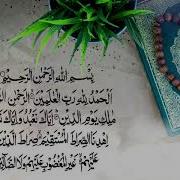 بِسْمِ اللهِ الرَّحْمٰنِ الرَّحِيْمِ
اَلْحَمْدُ لِلّٰهِ رَبِّ الْعٰلَمِيْنَ ۝ الرَّحْمٰنِ الرَّحِيْمِ
مٰلِكِ يَوْمِ الدِّيْنِ ۝ اِيَّاكَ نَعْبُدُ وَاِيَّاكَ
اِهْدِنَا الصِّرَاطَ الْمُسْتَقِيْمَ ۝ صِرَاطَ الَّذِيْنَ
عَلَيْهِمْ ۝ غَيْرِ الْمَغْضُوْبِ عَلَيْهِمْ وَلَا